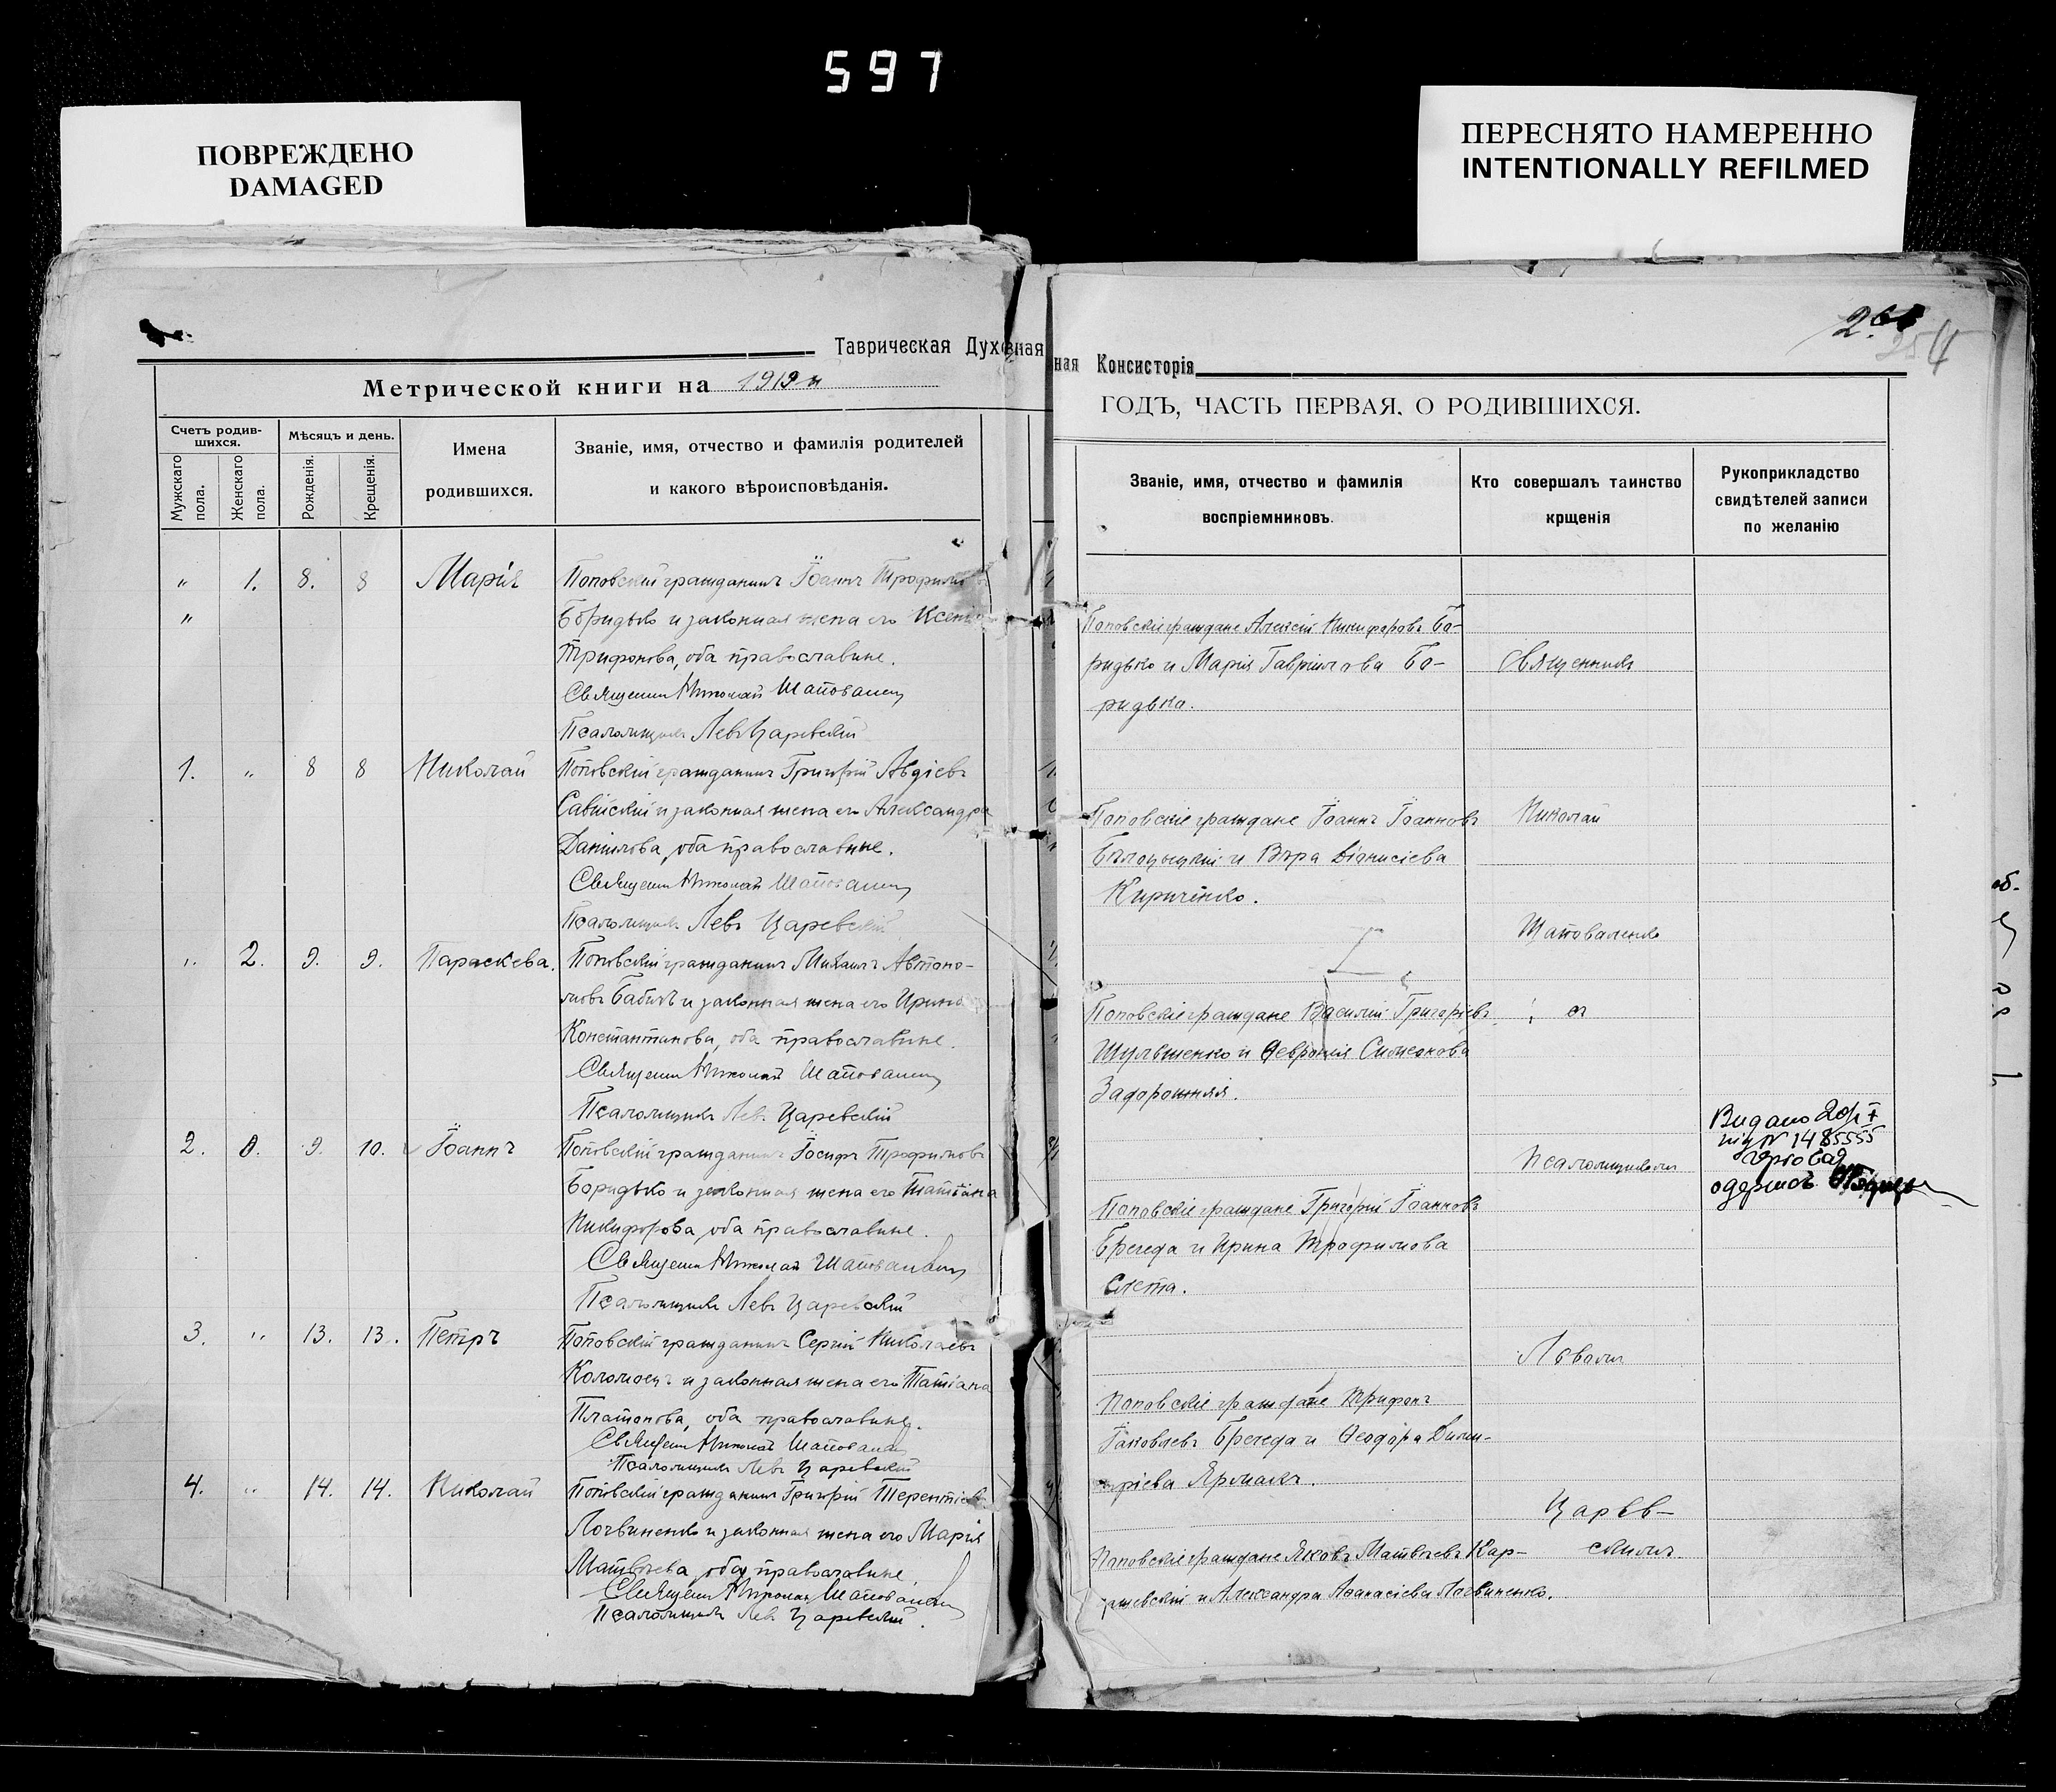 597
ПОВРЕЖДЕНО
DAMAGED
ПЕРЕСНЯТО НАМЕРЕННО
INTENTIONALLY REFILMED
Таврическая Духовная
Метрической книги на 1919
Счетъ родив-
шихся.
Мѣсяцъ и день.
Мужскаго
пола.
Женскаго
пола.
Рожденія.
Крещенія.
Имена
родившихся.
Званіе, имя, отчество и фамилія родителей
и какого вѣроисповѣданія.
" 1. 8. 8 Марія Поповскій гражданинъ Іоаннъ Трофимо
" Боридько и законная жена его Ксенія
Трифонова, оба православные.
Священникъ Николай Шаповаленко
Псаломщикъ Левъ Царевскій
1. " 8 8 Николай Поповскій гражданинъ Григорій Авдіевъ
и законная жена его Александра
Данилова, оба православные.
Священникъ Николай Шаповаленко
Псаломщикъ Левъ Царевскій
" 2. 9. 9. Параскева. Поповскій гражданинъ Михаилъ Автоно-
мовъ Бабичъ и законная жена его Ирина
Константинова, оба православные.
Священникъ Николай Шаповаленко
Псаломщикъ Левъ Царевскій
2. 0. 9. 10. Іоаннъ Поповскій гражданинъ Іосифъ Трофимовъ
Боридько и законная жена его Татіана
Никифорова, оба православные.
Священникъ Николай Шаповаленко
Псаломщикъ Левъ Царевскій
3. " 13. 13. Петръ Поповскій гражданинъ Сергій Николаевъ
Коломоецъ и законная жена его Татіана
Платонова, оба православные.
Священникъ Николай Шаповаленко
Псаломщикъ Левъ Царевскій
4. " 14. 14. Николай Поповскій гражданинъ Григорій Терентіевъ
Логвиненко и законная жена его Марія
Матвѣева, оба православные
Священникъ Николай Шаповаленко
Псаломщикъ Левъ Царевскій.
254
ная Консисторія
ГОДЪ, ЧАСТЬ ПЕРВАЯ, О РОДИВШИХСЯ.
Званіе, имя, отчество и фамилія
воспріемниковъ.
Кто совершалъ таинство
крщенія
Рукоприкладство
свидѣтелей записи
по желанію
Поповскіе граждане Алексій Никифоровъ Бо-
ридько и Марія Гавріилова Бо-
ридька.
Священникъ
Поповскіе граждане Іоаннъ Іоанновъ
и Вѣра Діонисіева
Кириченко.
Николай
Шаповаленко
Поповскіе граждане Василій Григоріевъ
Шульженко и Февронія Симеонова
Задорожняя.
и съ
Поповскіе граждане Григорій Іоанновъ
Брегеда и Ирина Трофимова
Слета.
Псаломщикомъ
Видано
під N 1485555
одержав
Поповскіе граждане Трифонъ
Іаковлевъ Брегеда и Феодора Дими-
тріева Ярмакъ.
Львомъ
Поповскіе граждане Яковъ Матвѣевъ Кар-
и Александра Афанасіева Логвиненко.
Царев-
скимъ.